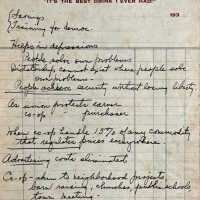 "IT'S THE BEST DRINK I EVER HAD."
193
(Savings
(Training for
Helps in depressions
People solve our problems
Dictatorship cannot exist when people solve
own problems.
People achieve security without losing liberty
As union protects earner
co-op " purchaser
When co-op handles 15% of any commodity
that regulates prices everywhere.
Advertising costs eliminated
Co-op - akin to neighborhood projects
barn raising, churches, public schools,
town meeting.